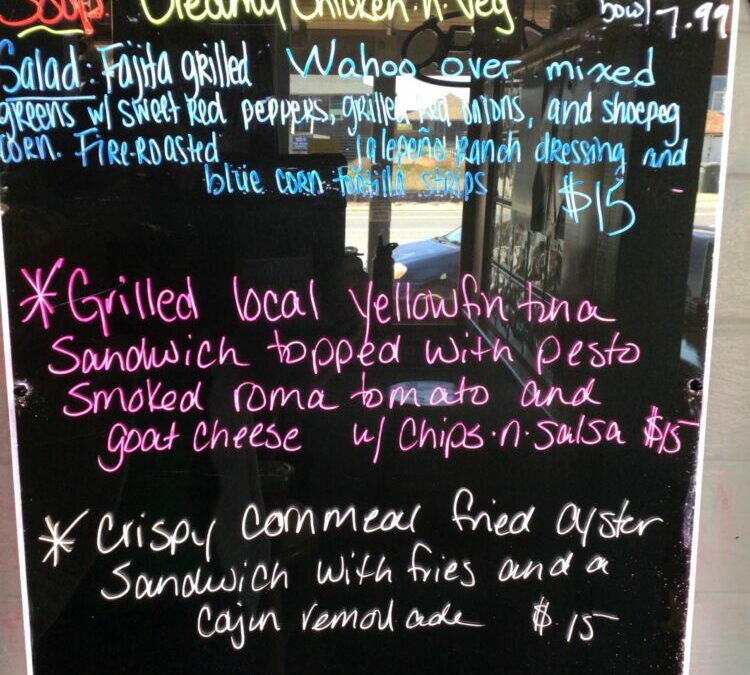 Soup: Creamy Chicken·n·Veg bowl 7.99
Salad: Fajita grilled Wahoo over mixed
greens w/ sweet red peppers, grilled red onions, and shoepeg
corn. Fire-roasted jalepeño ranch dressing and
blue corn tortilla strips $15
*Grilled local yellowfin tuna
Sandwich topped with pesto
smoked roma tomato and
goat cheese w/ Chips·n·Salsa $15
*Crispy cornmeal fried oyster
Sandwich with fries and a
cajun remoulade $15